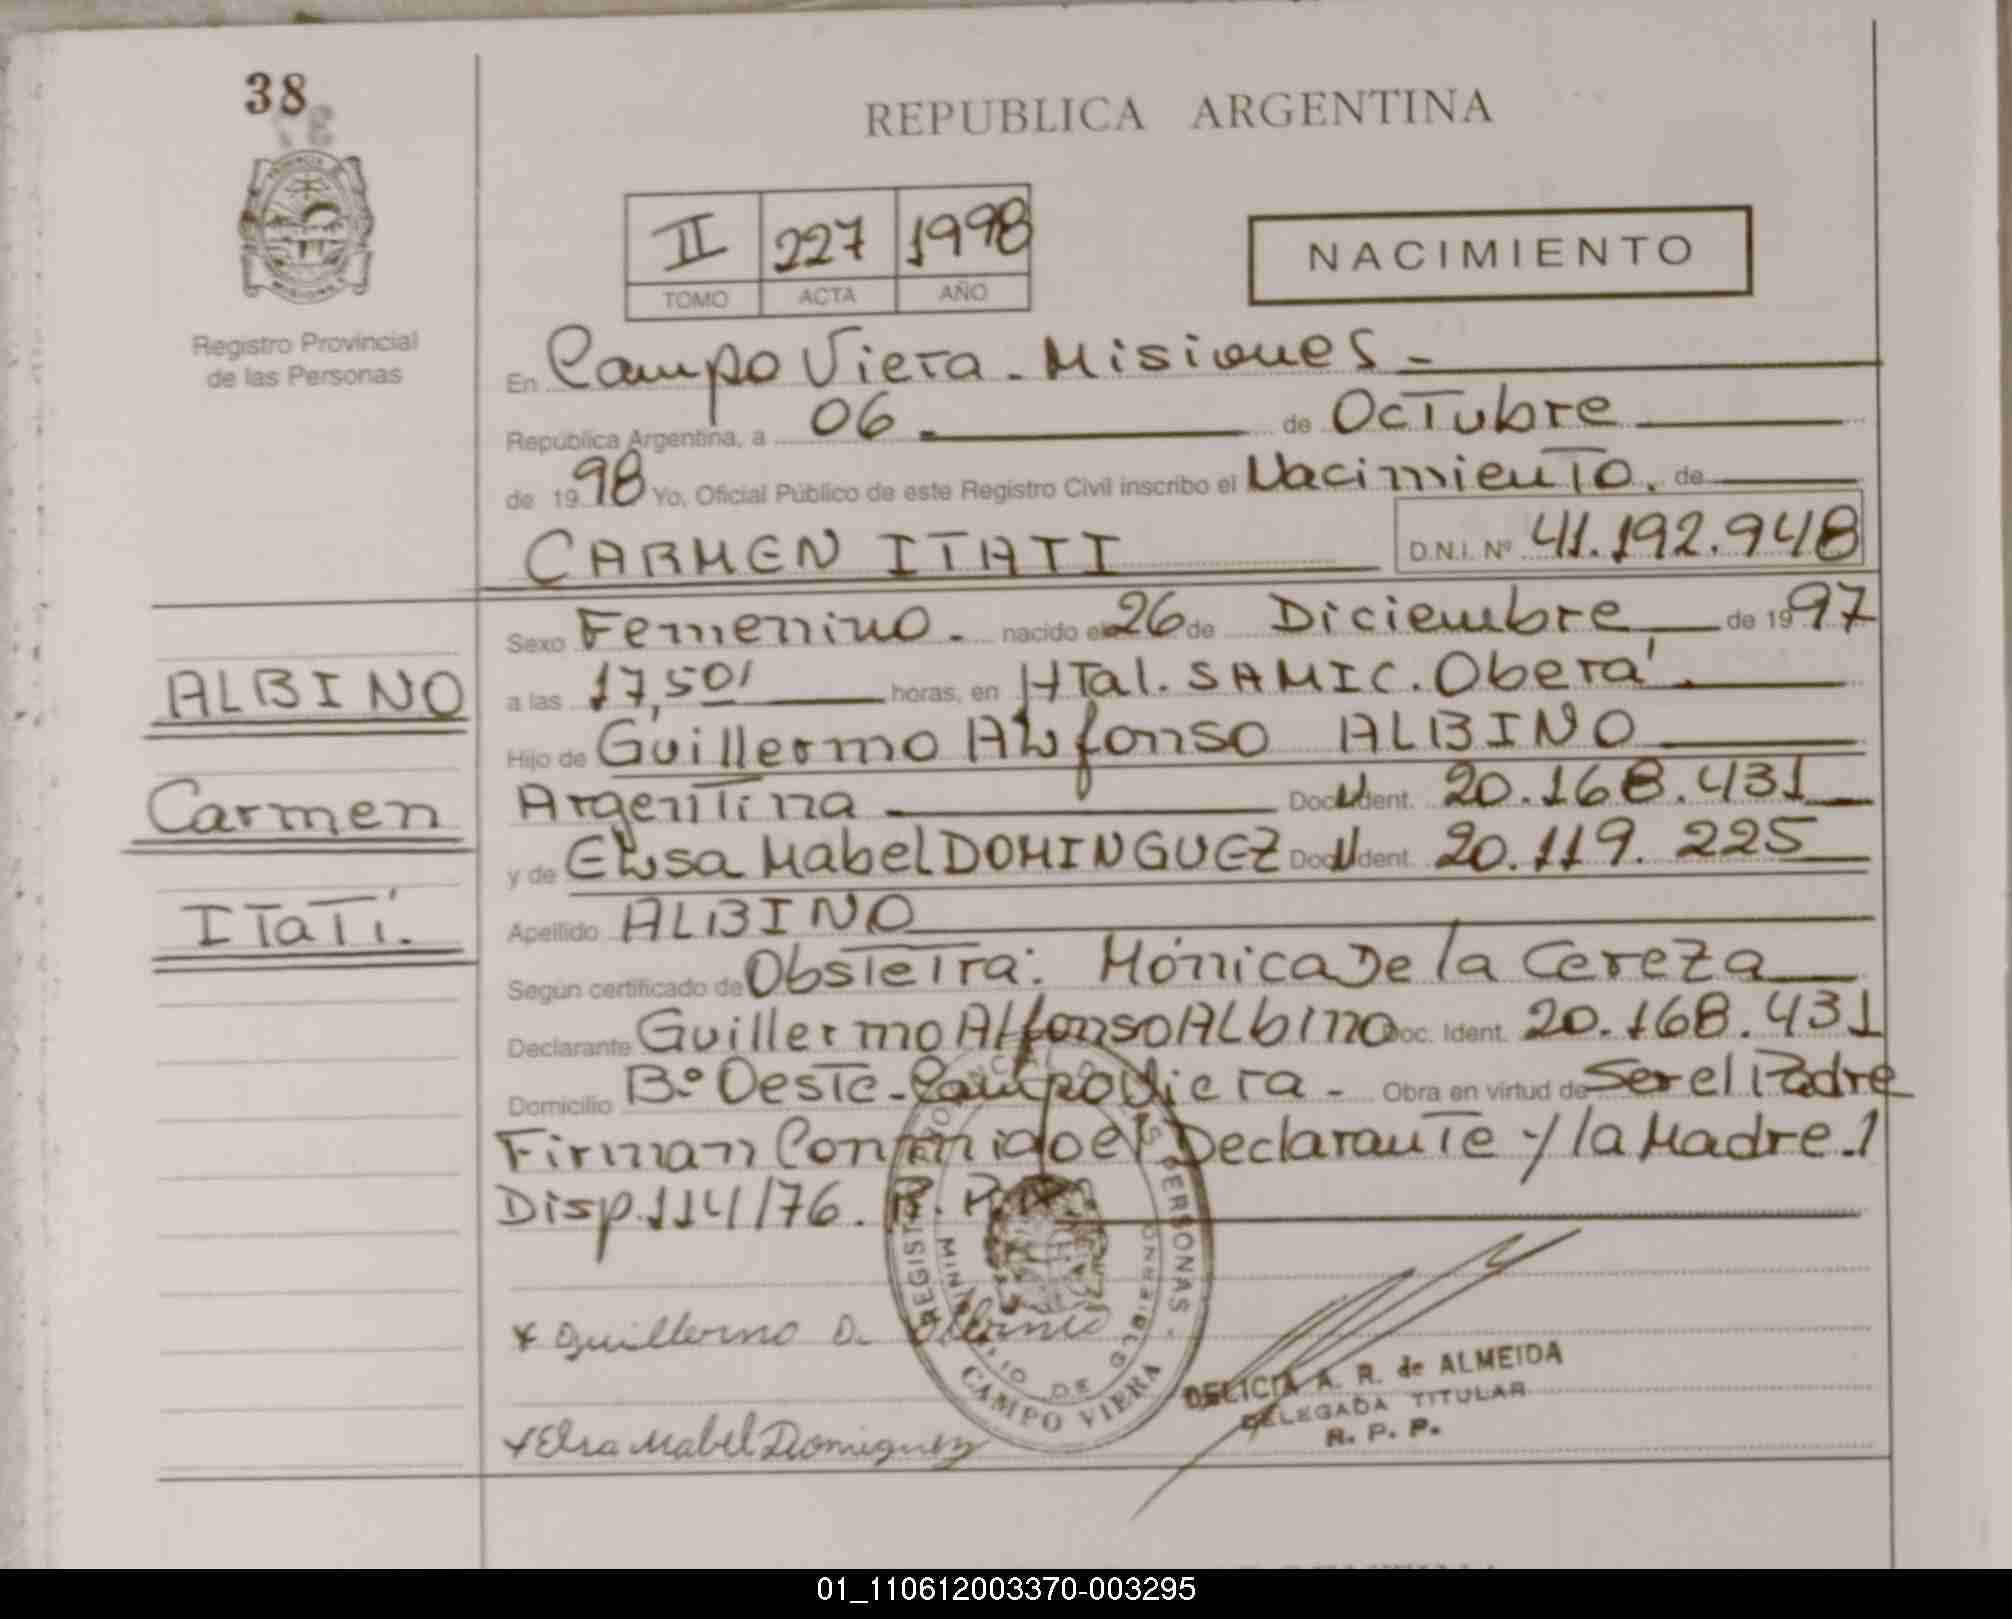 38
REPUBLICA ARGENTINA
II 227 1998
TOMO ACTA AÑO
NACIMIENTO
Registro Provincial
de las Personas
En Campo Viera - Misiones -
República Argentina, a 06 - de Octubre
de 1998 Yo, Oficial Público de este Registro Civil inscribo el Nacimiento. de
CARMEN ITATI D.N.I. Nº 41.192.948
Sexo Femenino - nacido el 26 de Diciembre de 1997
a las 17,50' horas, en HTal. SAMIC. Oberá.
Hijo de Guillermo Alfonso ALBINO
Argentina Doc. Ident. 20.168.431
y de Elsa Mabel DOMINGUEZ Doc. Ident. 20.119.225
Apellido ALBINO
Según certificado de Obstetra: Mónica De la Cereza
Declarante Guillermo Alfonso Albino Doc. Ident. 20.168.431
Domicilio Bº Oeste - Campo Viera - Obra en virtud de Ser el Padre
Firman Conmigo el Declarante y la Madre.1
Disp. 114/76. R. P. P.
ALBINO
Carmen
Itatí.
x Guillermo A. Albino
x Elsa Mabel Dominguez
REGISTRO PROVINCIAL DE LAS PERSONAS -
MINISTERIO DE GOBIERNO
CAMPO VIERA
DELICIA A. R. de ALMEIDA
DELEGADA TITULAR
R. P. P.
01_110612003370-003295